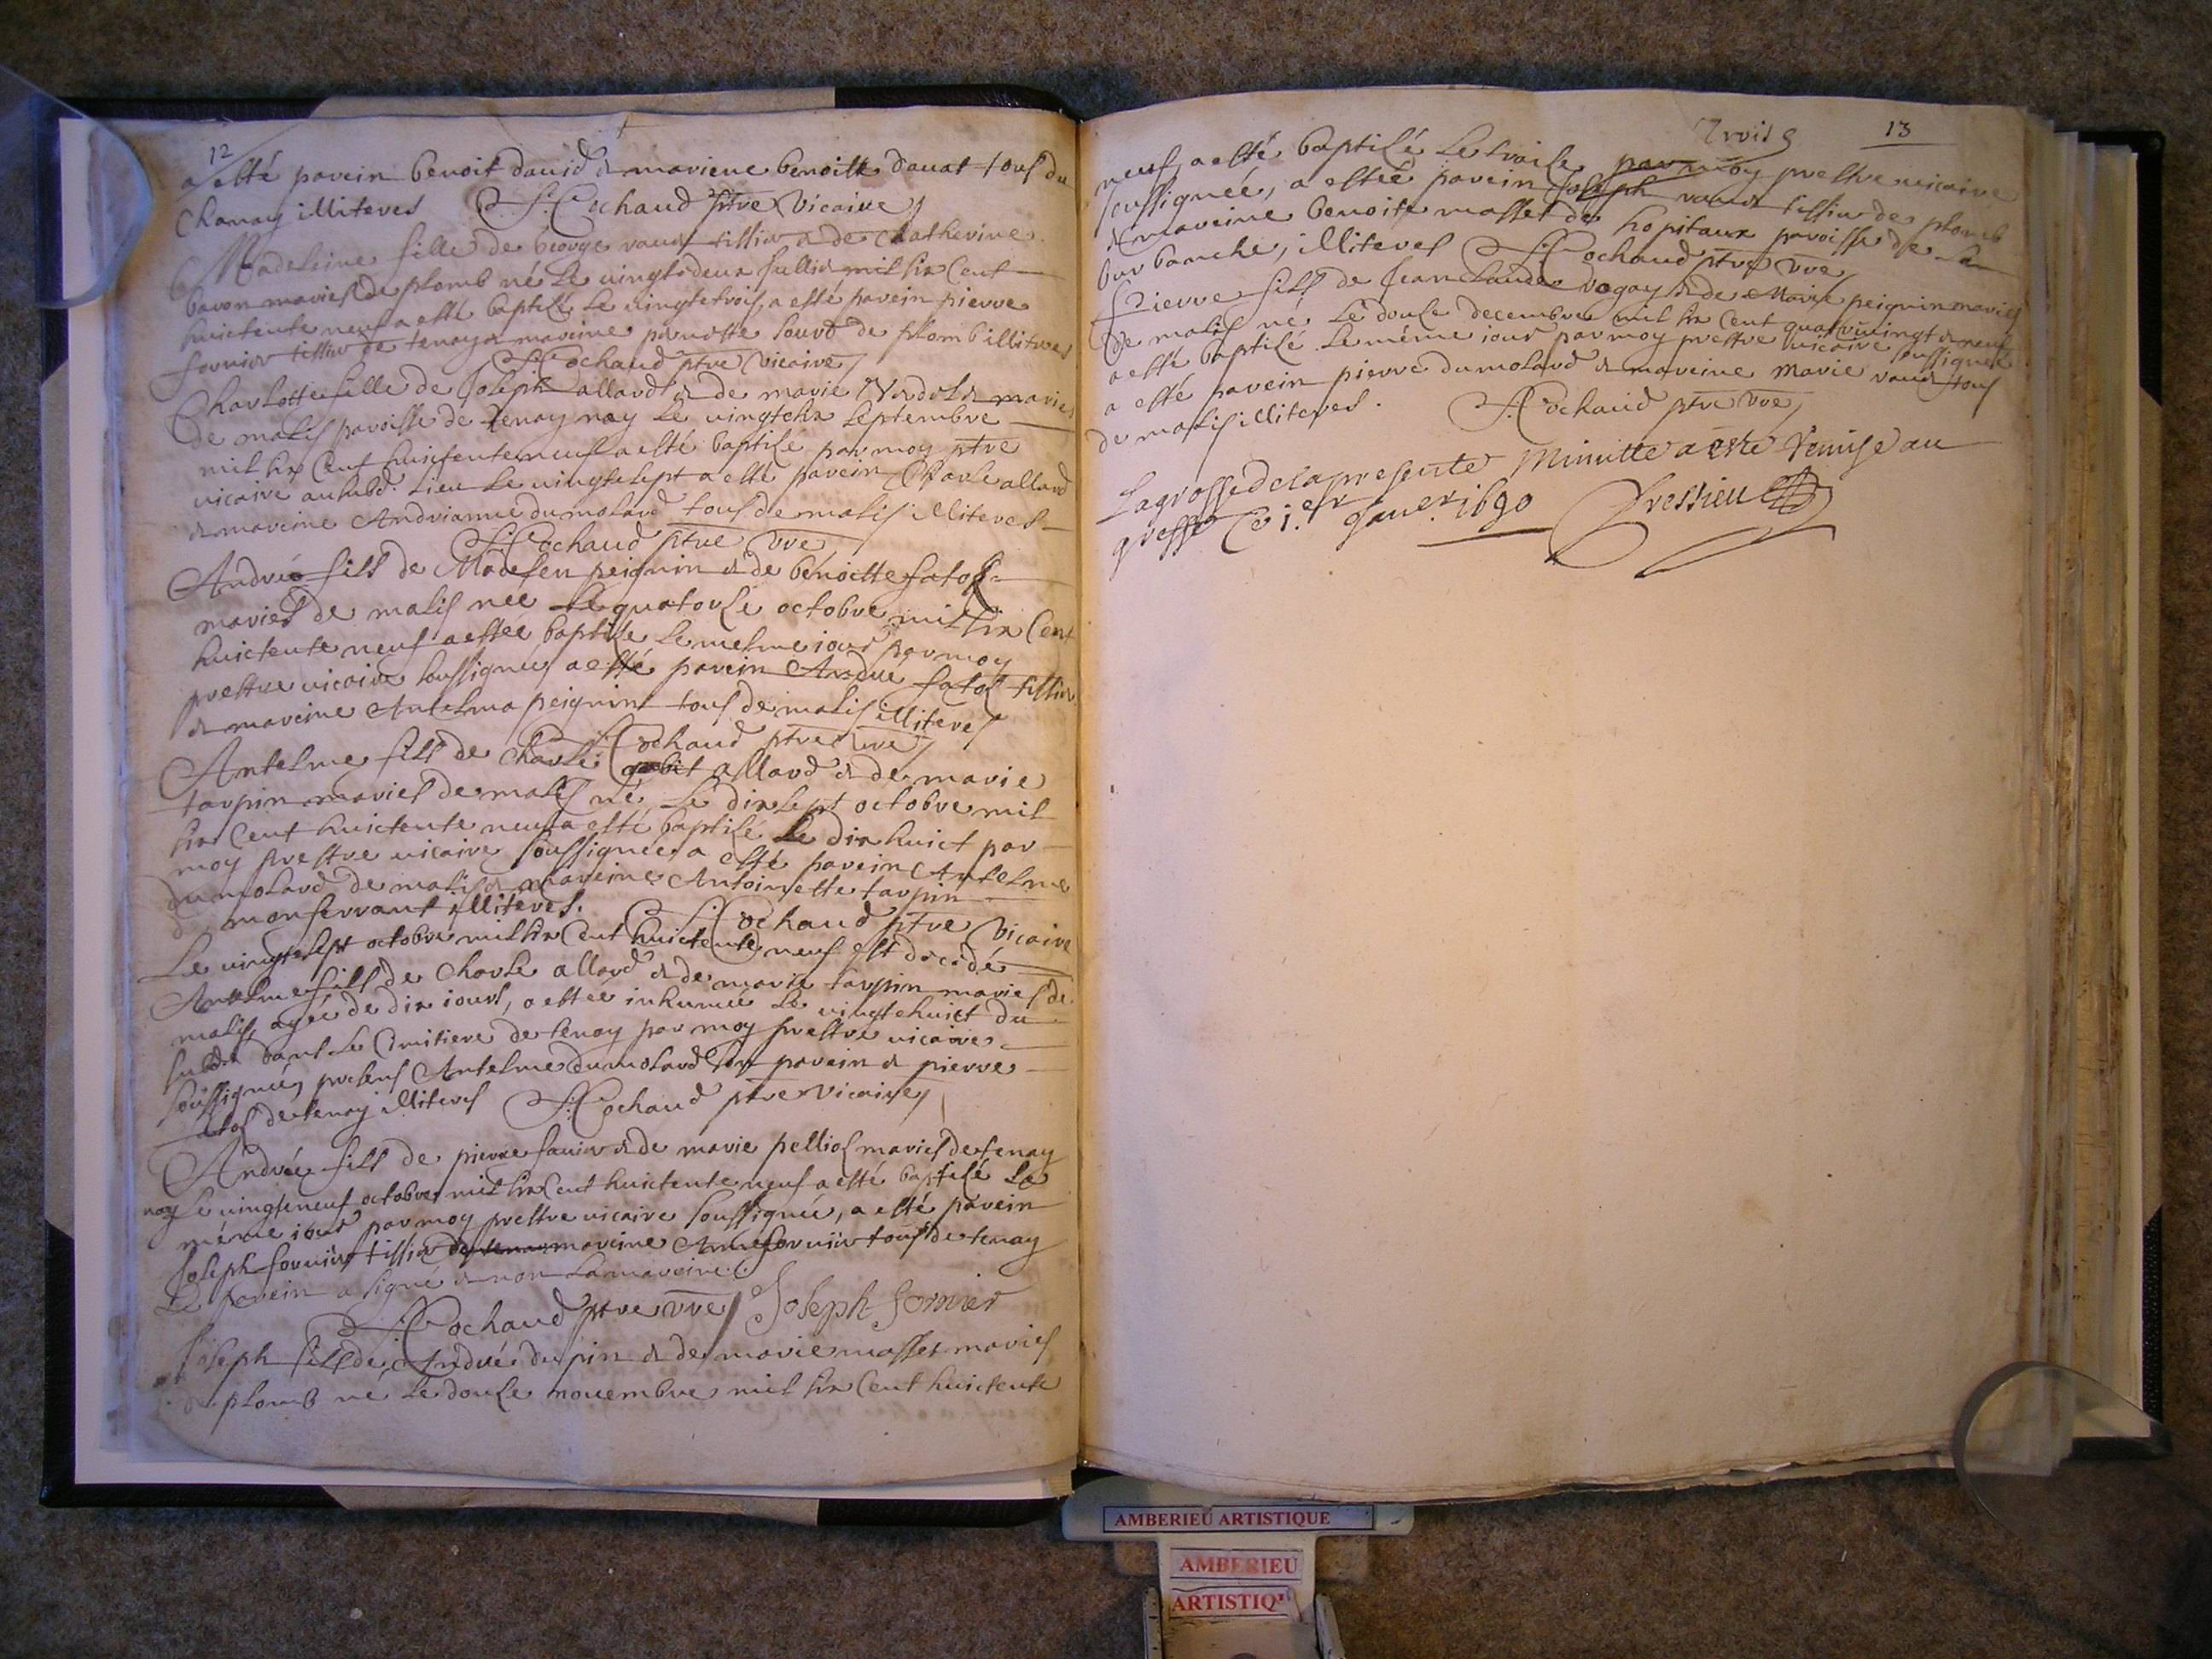 12
a esté parein benoit david & mareine benoitte davat tous du
Chanay illiteres F. Cochaud ptre Vicaire
Madeleine fille de George vaud tissier & de Catherine
baron mariés de plomb né le vingtedeux Jullier mil six Cent
huictente neuf a esté baptisé le vingtetrois, a esté parein pierre
fornier tissier de tenay & mareine pernette sourd de plomb illiteres
F. Cochaud ptre Vicaire
Charlotte fille de Joseph allard & de marie mariés
de malis paroisse de tenay nay le vingtesix septembre
mil six Cent huictente neuf a esté baptisé par moy ptre
vicaire audud. Lieu le vingtesept a esté parein Charle allard
& mareine Andrianne dumolard tous de malis illiteres
F. Cochaud ptre vre
André fils de peignin & de benoitte fatos
mariés de malis née le quatorse octobre mil six Cent
huictente neuf a estée baptisé le mesme iour par moy
prestre vicaire soussignée a esté parein André fatos tissier
& mareine Antelma peignin tous de malis illiteres
F. Cochaud ptre vre
Antelme fils de Charle allard & de marie
tarpin mariés de malis né le dixsept octobre mil
six Cent huictente neuf a esté baptisé le dixhuict par
moy prestre vicaire soussignée a esté parein Antelme
dumolard de malis & mareine Antoinette tarpin
de monferrant illiteres. F. Cochaud ptre Vicaire
Le vingtesept octobre mil six Cent huictente neuf est décédé
Antelme fils de Charle allard & de marie tarpin mariés de
malis, agée de dix iours, a estée inhumée le vingtehuict du
susdit dans le Cimitiere de tenay par moy prestre vicaire
soussignée, presens Antelme dumolard son parein & pierre
fatos de tenay illiteres F. Cochaud ptre Vicaire
Andrée fils de pierre favier & de marie pellios mariés de tenay
nay le vingteneuf octobre mil six Cent huictente neuf a esté baptisé le
méme iour par moy prestre vicaire soussignée, a esté parein
Joseph fornier tissier mareine Anne fornier tous de tenay
Le parein a signé & non la mareine.
F. Cochaud ptre vre Joseph fornier
Joseph fils de André dupin & de marie masset mariés
de plomb né le douse novembre mil six Cent huictente
Trois 13
neuf, a esté baptisé le traise par moy prestre vicaire
soussignée, a estée parein Joseph vaud tissier de plomb
& mareine benoite masset des hopitaux paroisse de la
bur banche, illiteres F. Cochaud ptre vre
Pierre fils de Jean Claude vogay & de Marie peignin mariés
de malis né le douse decembre mil six Cent quatrevingt & neuf
a esté baptisé le méme iour par moy prestre vicaire soussigné
a esté parein pierre dumolard & mareine marie vaud tous
de malis illiteres. F. Cochaud ptre vre
La grosse de la presente Minutte a este remise au
greffe Ce 1.er Janer. 1690 Bressieu
AMBERIEU ARTISTIQUE
AMBERIEU
ARTISTIQ